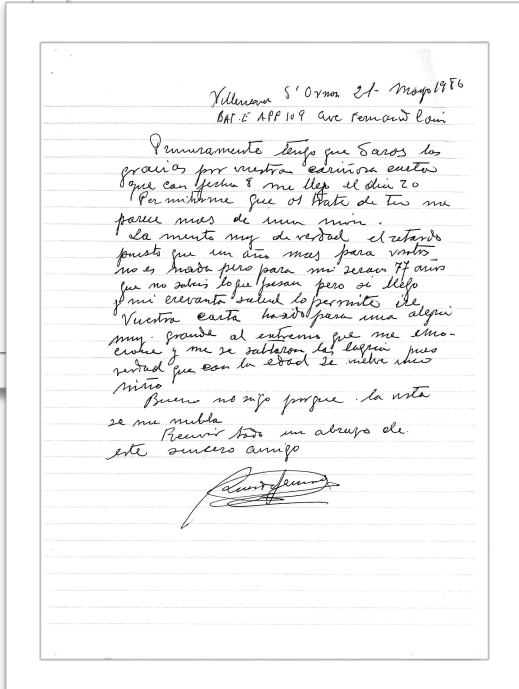 Villeneuve D'Ornon 21- Mayo 1986
BAT.E APP 109 Ave Fernand Coin
Primeramente tengo que Daros las
gracias por vuestra cariñosa carta
que con fecha 8 me llego el dia 20
Permitirme que os trate de tu me
parece mas de
La mento muy de verdad el retardo
puesto que un año mas para
no es nada pero para mi seran 77 años
que no sabeis lo que pesan pero si llego
y mi salud lo permite ire
Vuestra carta ha sido para una alegria
muy grande al extremo que me emo-
cione y me se saltaron las lagrim pues
verdad que con la edad se vuelve uno
niño
Bueno no sigo porque la vista
se me nubla
Recivir todo un abrazo de
este sincero amigo